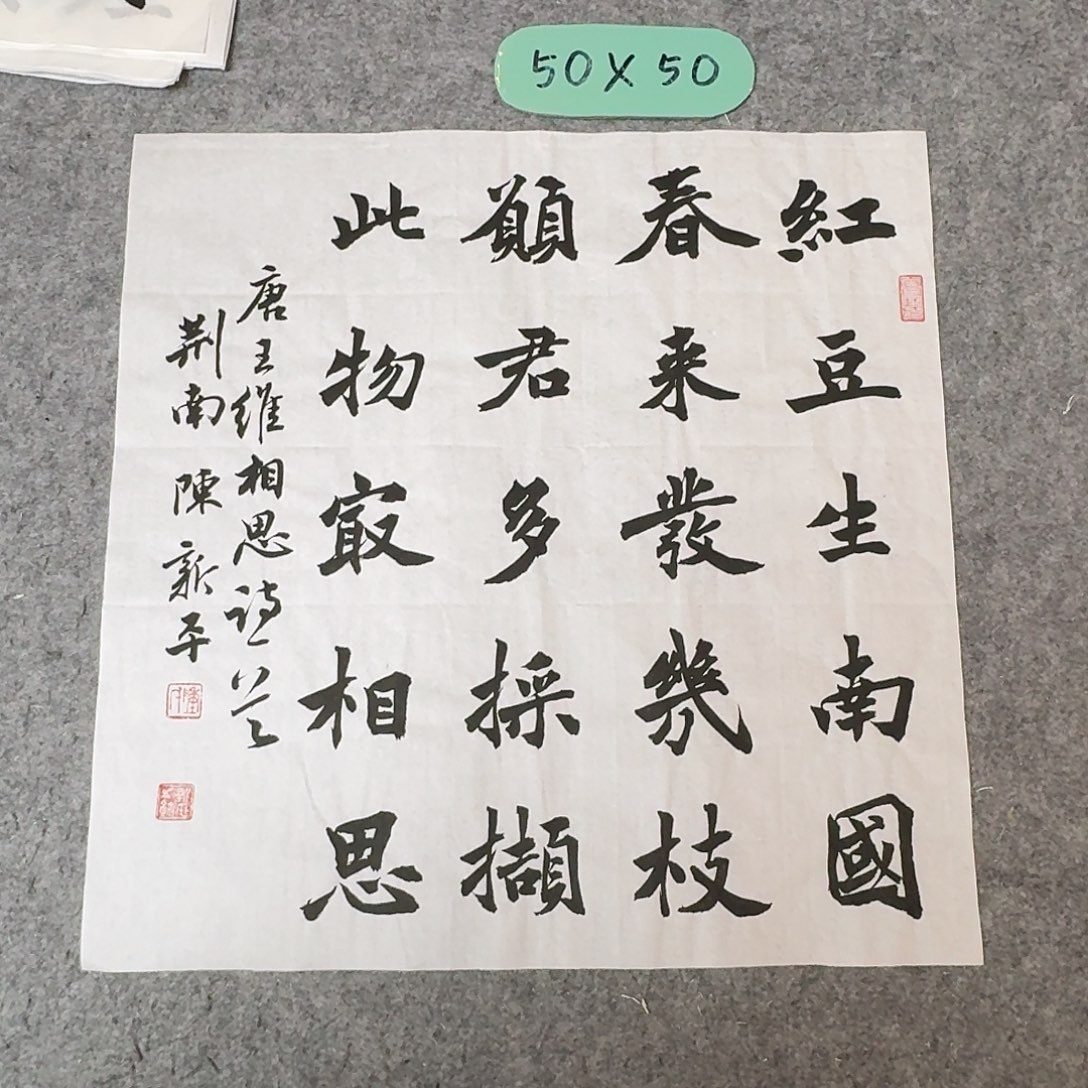 50X50
紅豆生南國
春来發幾枝
願君多採擷
此物㝡相思
唐王維相思詩一首
荆南陳新平